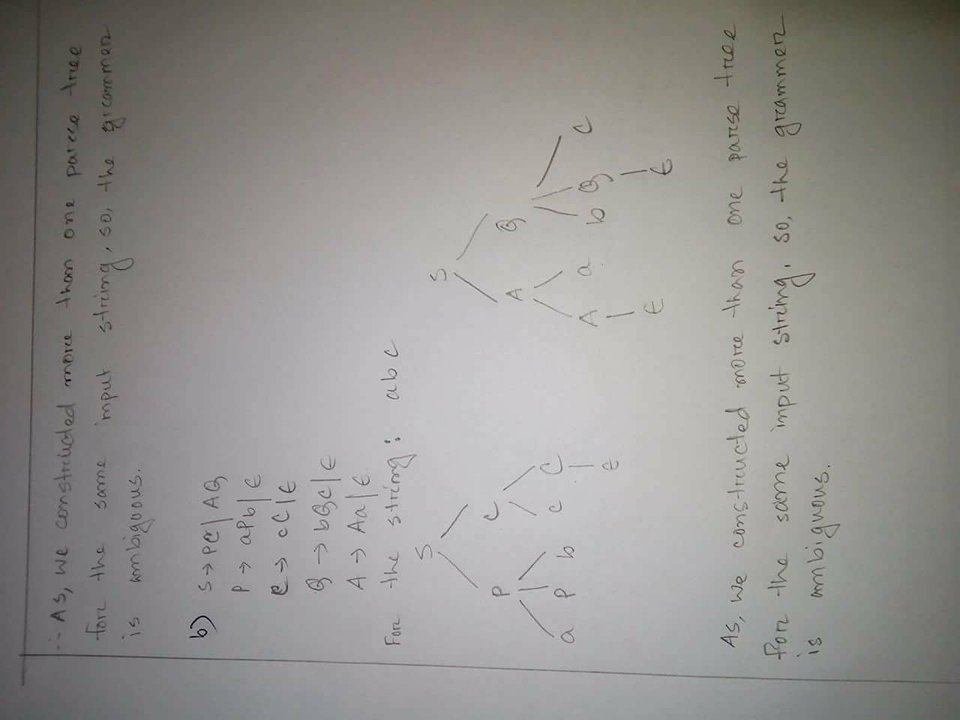 ∴ As, we constructed more than one parse tree
for the same input string, so, the grammer
is ambiguous.
b) S → PC | AQ
P → aPb | ϵ
C → cC | ϵ
Q → bQc | ϵ
A → Aa | ϵ
For the string: abc
S S
P C A Q
a P b c C A a b Q c
ϵ ϵ ϵ
As, we constructed more than one parse tree
for the same input string, so, the grammer
is ambiguous.